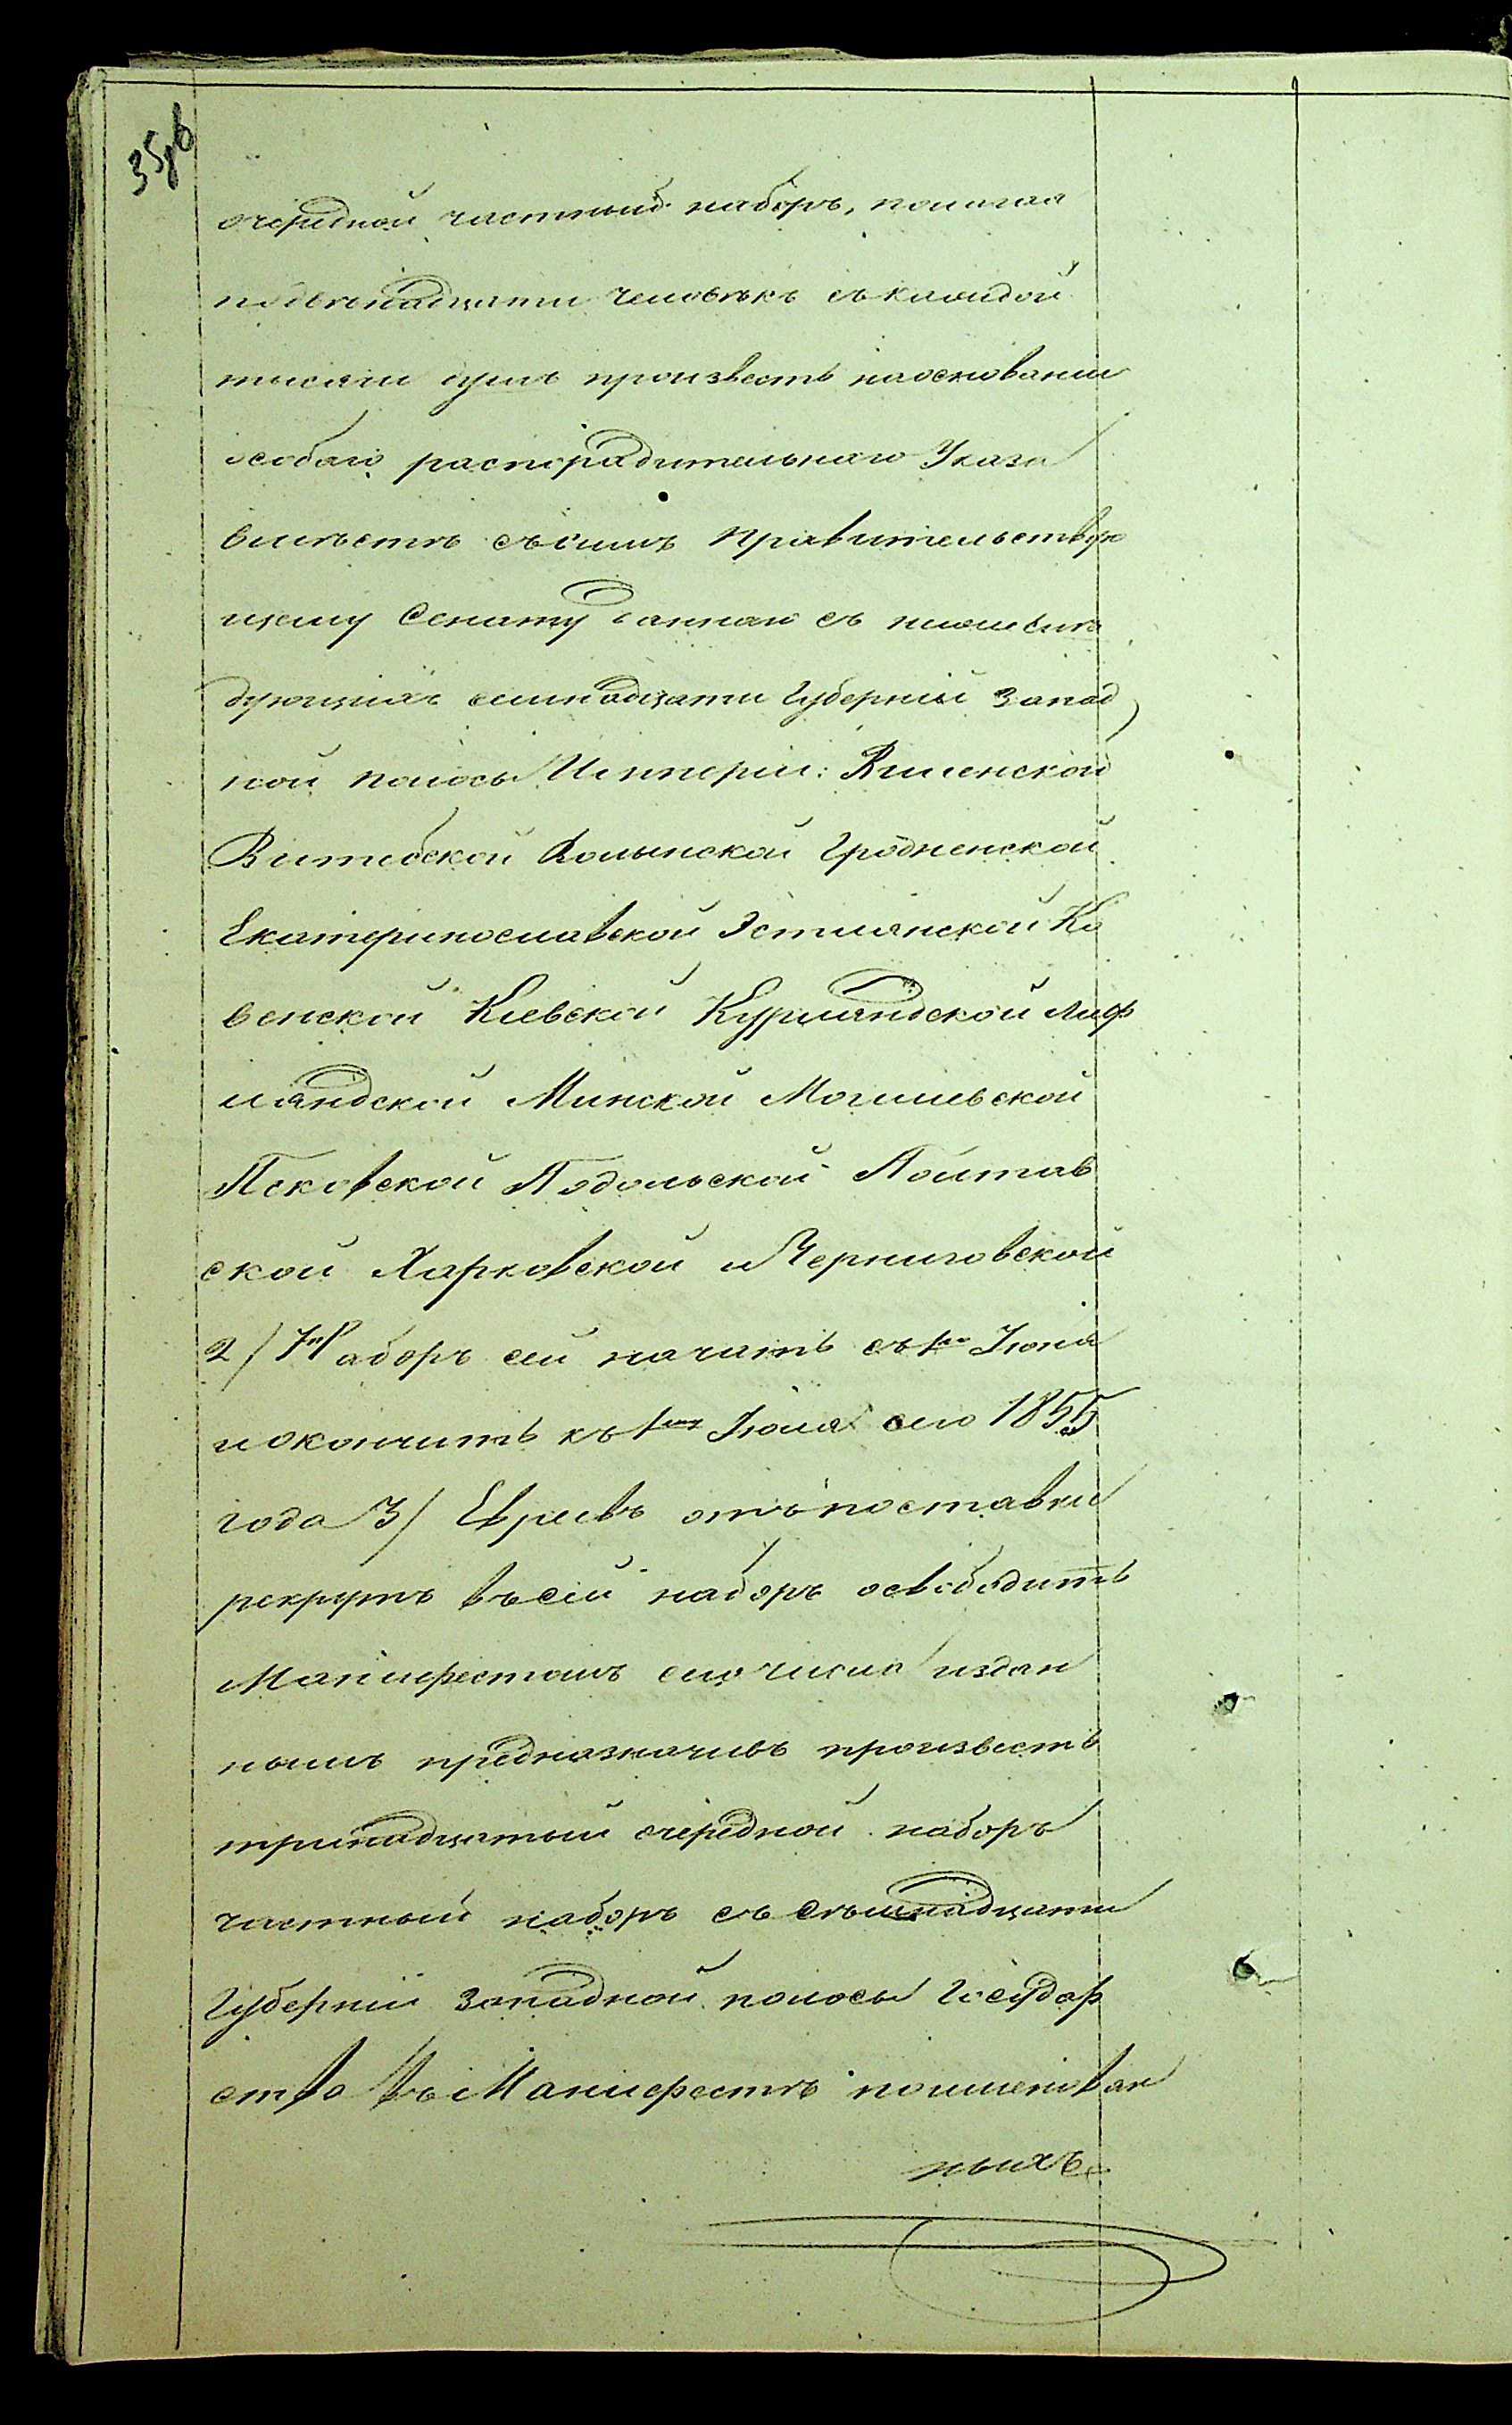 очередной частный наборъ, полагая
по двѣнадцати человѣкъ съ каждой
тысячи душъ произвесть на основании
особаго распорядительнаго Указа
вмѣстѣ съ симъ Правительствую
щему Сенату даннаго съ нижеслѣ
дующихъ семнадцати Губерній Запад
ной полосы Имперіи: Виленской
Витебской Волынской Гродненской
Екатеринославской Эстлянской Ко
венской Киевской Курляндской Лиф
ляндской Минской Могилевской
Псковской Подольской Полтав
ской Харковской и Черниговской
2) Наборъ сей начать съ 1го Іюня
и окончить къ 1му Іюля сего 1855
года 3) Евреевъ отъ поставки
рекрутъ въ сей наборъ освободить
Манифестомъ сего числа издан
нымъ предназначивъ произвесть
тринадцатый очередной наборъ
частный наборъ съ Семнадцати
Губерній Западной полосы Государ
ства въ Манифестѣ поименован
ныхъ